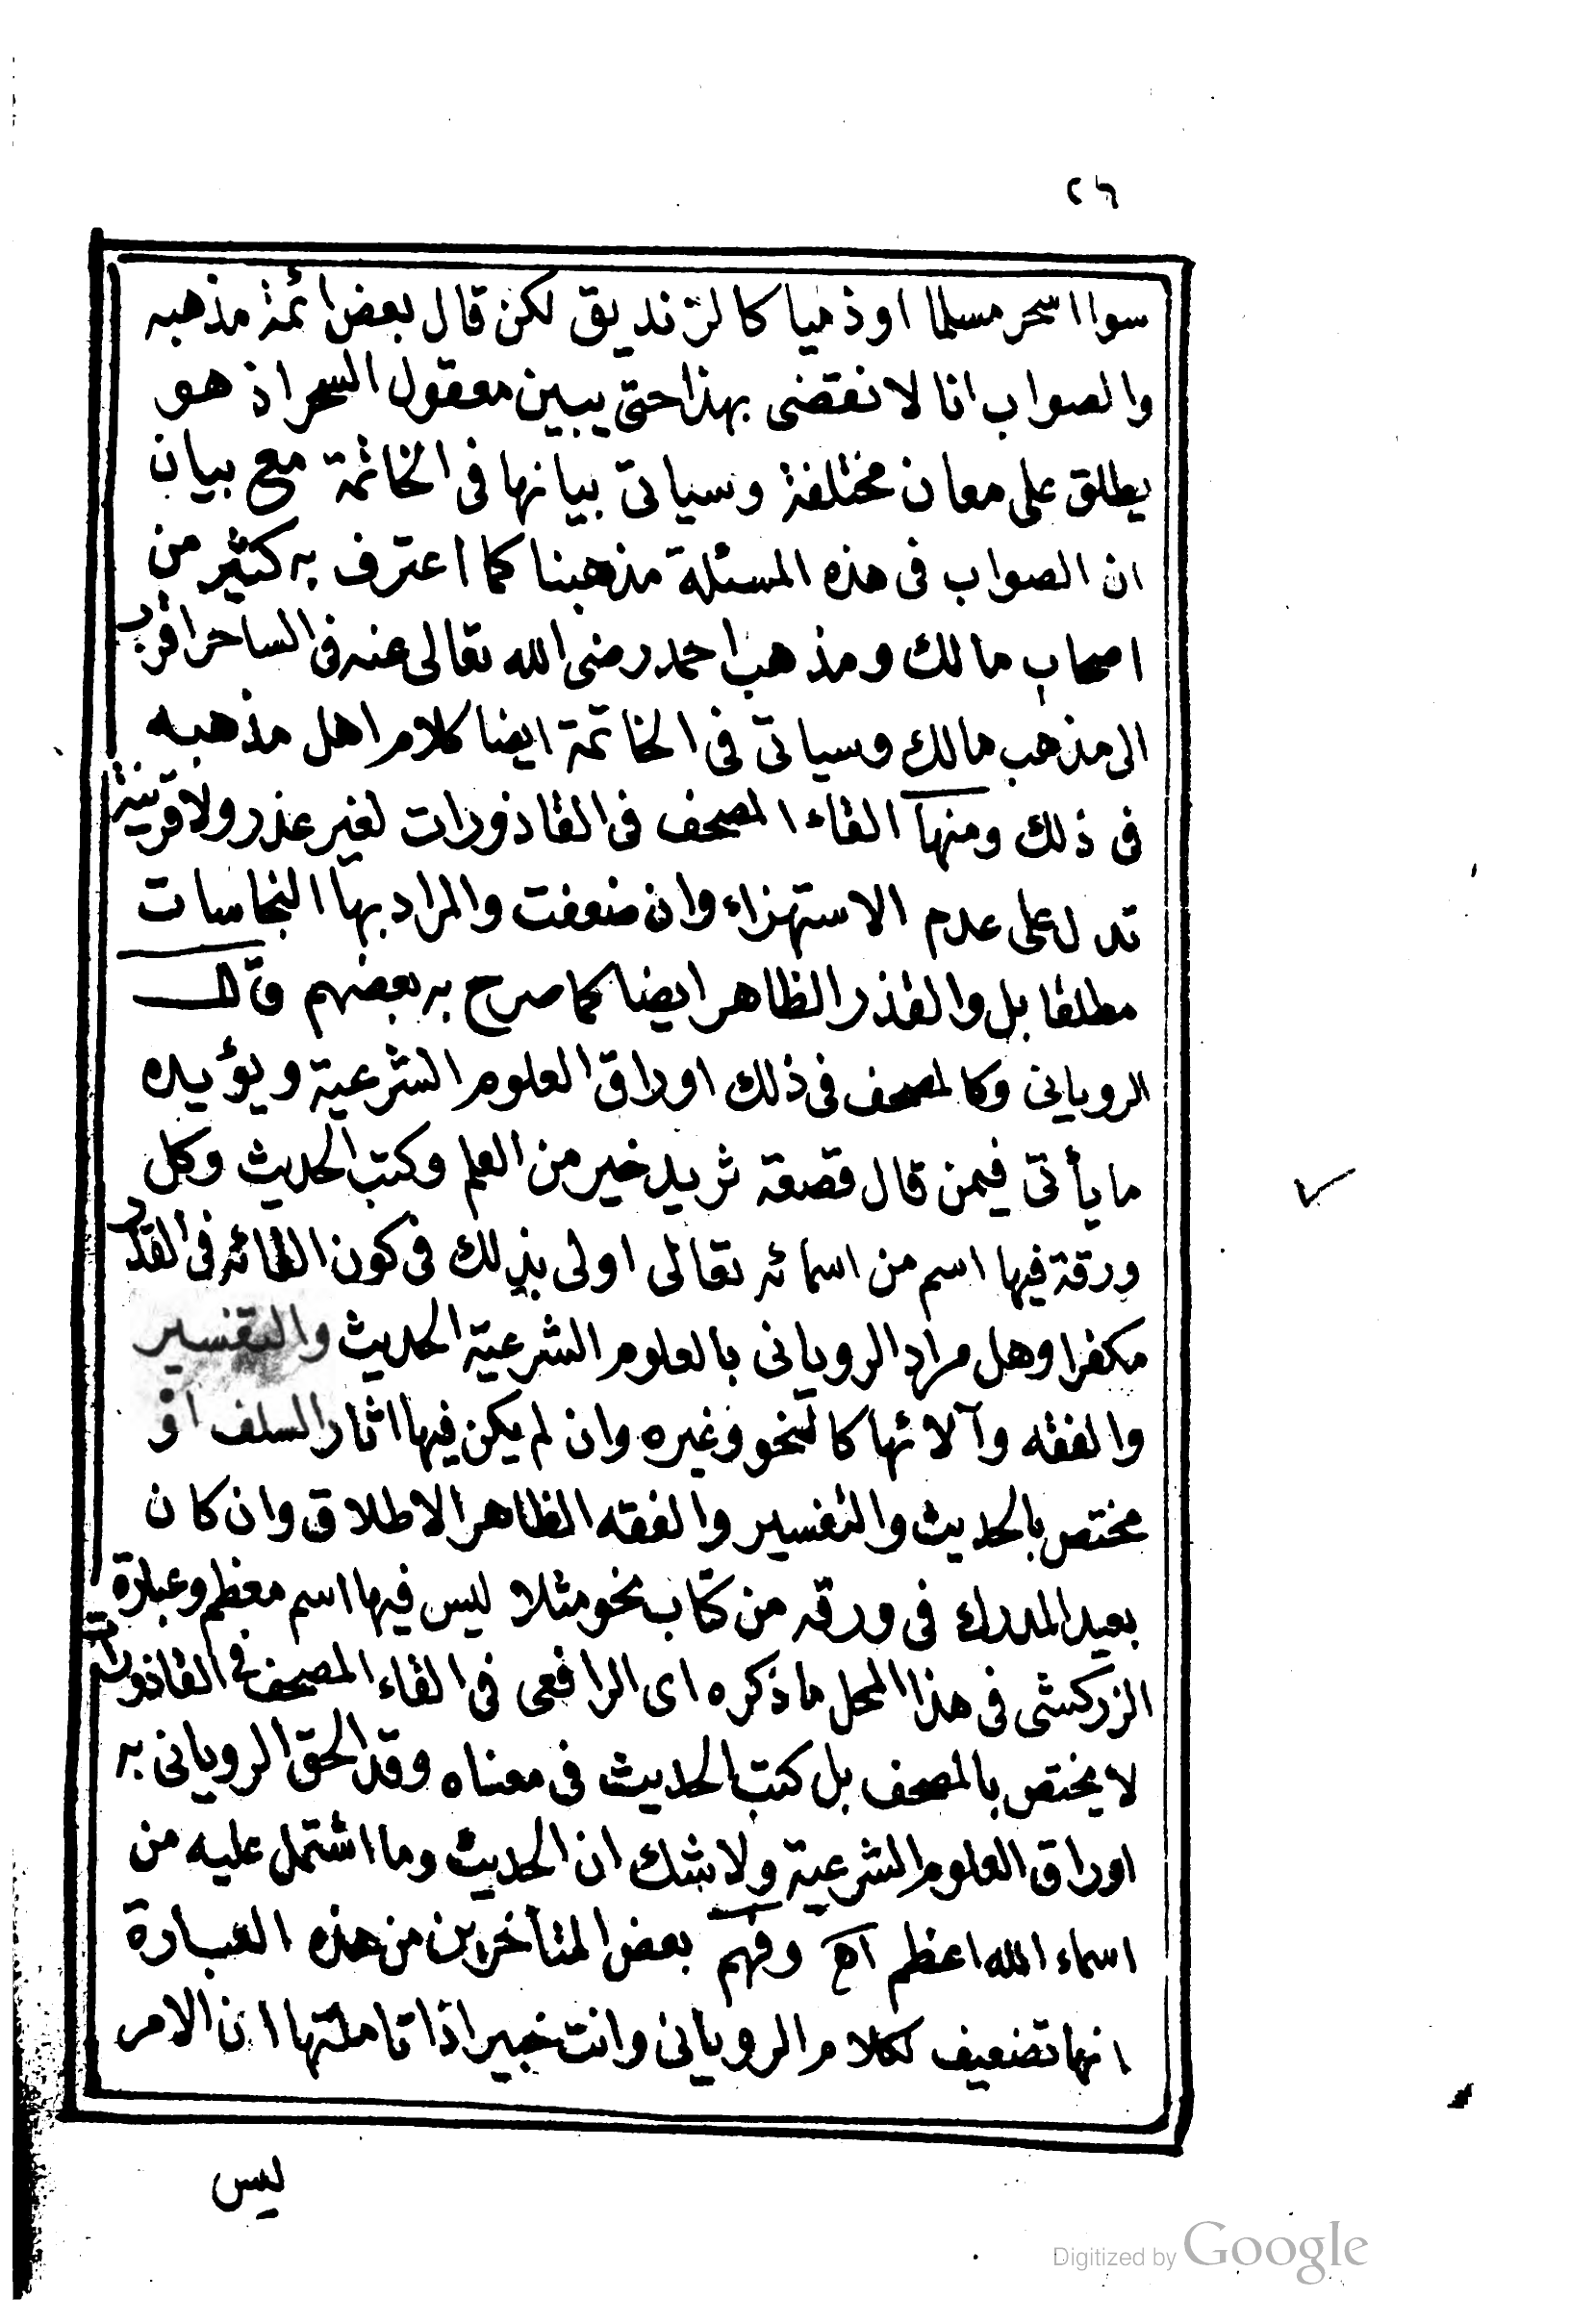 ٢٦
سوا اسحر مسلما او ذميا كالزنديق لكن قال بعض ائمة مذهبه
والصواب انا لا نقضى بهذا حتى يبين معقول السحر اذ هو
يطلق على معان مختلفة وسياتى بيانها فى الخاتمة مع بيان
ان الصواب فى هذه المسئلة مذهبنا كما اعترف به كثير من
اصحاب مالك ومذهب احمد رضى الله تعالى عنه فى الساحر اقرب
الى مذهب مالك وسياتى فى الخاتمة ايضا كلام اهل مذهبه
فى ذلك ومنها القاء المصحف فى القاذورات لغير عذر ولا قرينة
تدل على عدم الاستهزاء وان ضعفت والمراد بها النجاسات
مطلقا بل والقذر الظاهر ايضا كما صرح به بعضهم قال
الرويانى وكالمصحف فى ذلك اوراق العلوم الشرعية ويؤيده
ما يأتى فيمن قال قصعة ثريد خير من العلم وكتب الحديث وكل
ورقة فيها اسم من اسمائه تعالى اولى بذلك فى كون القائه فى القذر
مكفرا وهل مراد الرويانى بالعلوم الشرعية الحديث والتفسير
والفقه وآلاتها كالنحو وغيره وان لم يكن فيها اثار السلف او
مختص بالحديث والتفسير والفقه الظاهر الاطلاق وان كان
بعيد المدرك فى ورقة من كتاب نحو مثلا ليس فيها اسم معظم وعبارة
الزركشى فى هذا المحل ما ذكره اى الرافعى فى القاء المصحف فى القاذورات
لا يختص بالمصحف بل كتب الحديث فى معناه وقد الحق الرويانى به
اوراق العلوم الشرعية ولا شك ان الحديث وما اشتمل عليه من
اسماء الله اعظم اه وفهم بعض المتأخرين من هذه العبارة
انها تضعيف لكلام الرويانى وانت خبير اذا تاملتها ان الامر
ليس
Digitized by Google